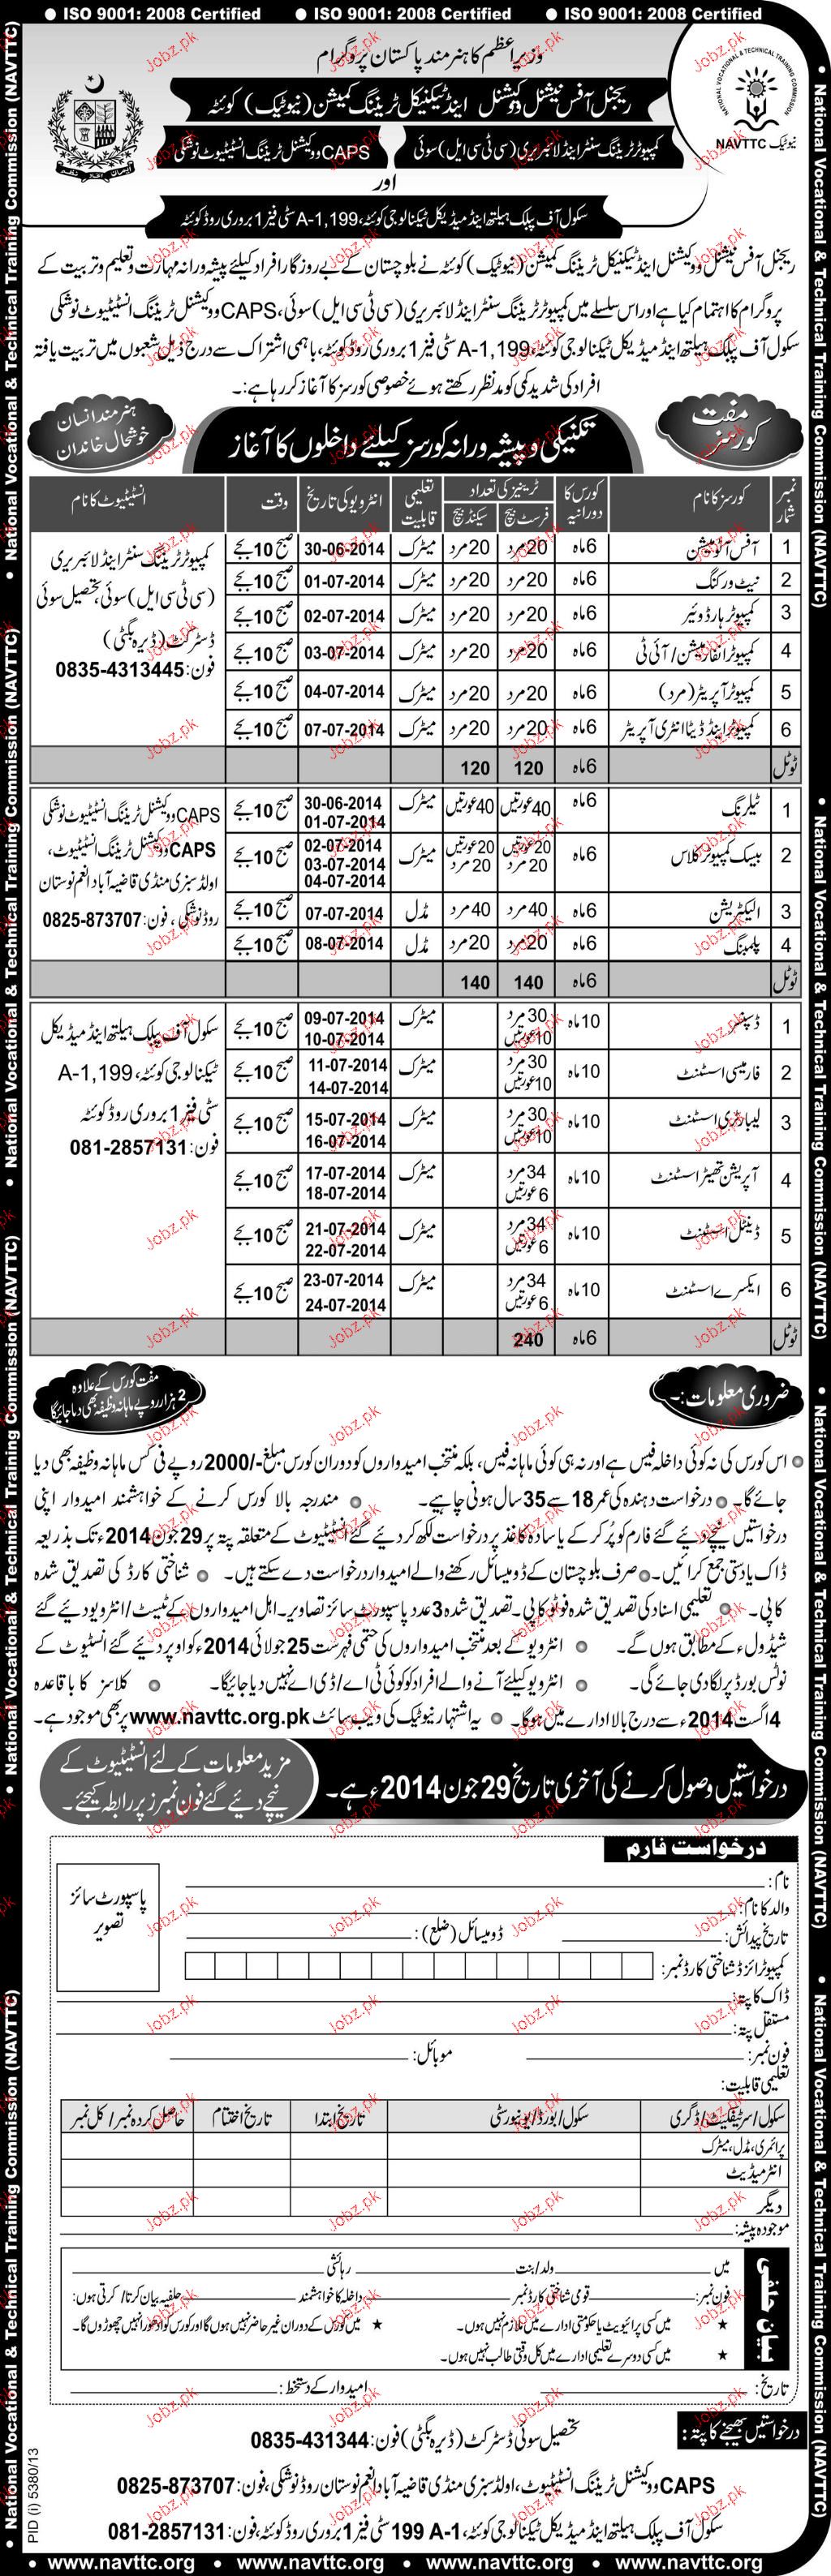 ISO 9001: 2008 Certified ● ISO 9001: 2008 Certified ● ISO 9001: 2008 Certified
وزیراعظم کا ہنرمند پاکستان پروگرام
NATIONAL VOCATIONAL & TECHNICAL TRAINING COMMISSION
NAVTTC نیوٹیک
ریجنل آفس نیشنل ووکیشنل اینڈ ٹیکنیکل ٹریننگ کمیشن (نیوٹیک) کوئٹہ
کمپیوٹر ٹریننگ سنٹر اینڈ لائبریری (سی ٹی سی ایل) سوئی
CAPS ووکیشنل ٹریننگ انسٹیٹیوٹ نوشکی
اور
سکول آف پبلک ہیلتھ اینڈ میڈیکل ٹیکنالوجی کوئٹہ، A-1,199 سٹی فیز 1 بروری روڈ کوئٹہ
ریجنل آفس نیشنل ووکیشنل اینڈ ٹیکنیکل ٹریننگ کمیشن (نیوٹیک) کوئٹہ نے بلوچستان کے بے روزگار افراد کیلئے پیشہ ورانہ مہارت و تعلیم و تربیت کے
پروگرام کا اہتمام کیا ہے اور اس سلسلے میں کمپیوٹر ٹریننگ سنٹر اینڈ لائبریری (سی ٹی سی ایل) سوئی، CAPS ووکیشنل ٹریننگ انسٹیٹیوٹ نوشکی
سکول آف پبلک ہیلتھ اینڈ میڈیکل ٹیکنالوجی کوئٹہ، A-1,199 سٹی فیز 1 بروری روڈ کوئٹہ، باہمی اشتراک سے درج ذیل شعبوں میں تربیت یافتہ
افراد کی شدید کمی کو مدنظر رکھتے ہوئے خصوصی کورسز کا آغاز کر رہا ہے:۔
مفت کورسز
تکنیکی و پیشہ ورانہ کورسز کیلئے داخلوں کا آغاز
ہنرمند انسان خوشحال خاندان
نمبر شمار کورسز کا نام کورس کا دورانیہ ٹرینیز کی تعداد فرسٹ بیچ سیکنڈ بیچ تعلیمی قابلیت انٹرویو کی تاریخ وقت انسٹیٹیوٹ کا نام
1 آفس آٹومیشن 6ماہ 20مرد 20مرد میٹرک 30-06-2014 صبح 10 بجے
2 نیٹ ورکنگ 6ماہ 20مرد 20مرد میٹرک 01-07-2014 صبح 10 بجے
3 کمپیوٹر ہارڈوئیر 6ماہ 20مرد 20مرد میٹرک 02-07-2014 صبح 10 بجے
4 کمپیوٹر انفارمیشن/ آئی ٹی 6ماہ 20مرد 20مرد میٹرک 03-07-2014 صبح 10 بجے
5 کمپیوٹر آپریٹر (مرد) 6ماہ 20مرد 20مرد میٹرک 04-07-2014 صبح 10 بجے
6 کمپیوٹر اینڈ ڈیٹا انٹری آپریٹر 6ماہ 20مرد 20مرد میٹرک 07-07-2014 صبح 10 بجے
کمپیوٹر ٹریننگ سنٹر اینڈ لائبریری
(سی ٹی سی ایل) سوئی، تحصیل سوئی
ڈسٹرکٹ (ڈیرہ بگٹی)
فون: 0835-4313445
ٹوٹل 6ماہ 120 120
1 ٹیلرنگ 6ماہ 40عورتیں 40عورتیں میٹرک 30-06-2014 01-07-2014 صبح 10 بجے
2 بیسک کمپیوٹر کلاس 6ماہ 20عورتیں 20مرد 20عورتیں 20مرد میٹرک 02-07-2014 03-07-2014 04-07-2014 صبح 10 بجے
3 الیکٹریشن 6ماہ 40مرد 40مرد مڈل 07-07-2014 صبح 10 بجے
4 پلمبنگ 6ماہ 20مرد 20مرد مڈل 08-07-2014 صبح 10 بجے
CAPS ووکیشنل ٹریننگ انسٹیٹیوٹ نوشکی
CAPS ووکیشنل ٹریننگ انسٹیٹیوٹ،
اولڈ سبزی منڈی قاضیہ آباد انعم نوستان
روڈ نوشکی، فون: 0825-873707
ٹوٹل 6ماہ 140 140
1 ڈسپنسر 10ماہ 30مرد 10عورتیں میٹرک 09-07-2014 10-07-2014 صبح 10 بجے
2 فارمیسی اسسٹنٹ 10ماہ 30مرد 10عورتیں میٹرک 11-07-2014 14-07-2014 صبح 10 بجے
3 لیبارٹری اسسٹنٹ 10ماہ 30مرد 10عورتیں میٹرک 15-07-2014 16-07-2014 صبح 10 بجے
4 آپریشن تھیٹر اسسٹنٹ 10ماہ 34مرد 6عورتیں میٹرک 17-07-2014 18-07-2014 صبح 10 بجے
5 ڈینٹل اسسٹنٹ 10ماہ 34مرد 6عورتیں میٹرک 21-07-2014 22-07-2014 صبح 10 بجے
6 ایکسرے اسسٹنٹ 10ماہ 34مرد 6عورتیں میٹرک 23-07-2014 24-07-2014 صبح 10 بجے
سکول آف پبلک ہیلتھ اینڈ میڈیکل
ٹیکنالوجی کوئٹہ، A-1,199
سٹی فیز 1 بروری روڈ کوئٹہ
فون: 081-2857131
ٹوٹل 6ماہ 240
ضروری معلومات:۔
مفت کورس کے علاوہ 2 ہزار روپے ماہانہ وظیفہ بھی دیا جائیگا
اس کورس کی نہ کوئی داخلہ فیس ہے اور نہ ہی کوئی ماہانہ فیس، بلکہ منتخب امیدواروں کو دوران کورس مبلغ -/2000 روپے فی کس ماہانہ وظیفہ بھی دیا
جائے گا۔ ● درخواست دہندہ کی عمر 18 سے 35 سال ہونی چاہیے۔ ● مندرجہ بالا کورس کرنے کے خواہشمند امیدوار اپنی
درخواستیں نیچے دیئے گئے فارم کو پُر کر کے یا سادہ کاغذ پر درخواست لکھ کر دیئے گئے انسٹیٹیوٹ کے متعلقہ پتہ پر 29 جون 2014ء تک بذریعہ
ڈاک یا دستی جمع کرائیں۔ ● صرف بلوچستان کے ڈومیسائل رکھنے والے امیدوار درخواست دے سکتے ہیں۔ ● شناختی کارڈ کی تصدیق شدہ
کاپی۔ ● تعلیمی اسناد کی تصدیق شدہ فوٹو کاپی۔ تصدیق شدہ 3 عدد پاسپورٹ سائز تصاویر۔ اہل امیدواروں کے ٹیسٹ/انٹرویو دیئے گئے
شیڈول کے مطابق ہوں گے۔ ● انٹرویو کے بعد منتخب امیدواروں کی حتمی فہرست 25 جولائی 2014ء کو اوپر دیئے گئے انسٹیوٹ کے
نوٹس بورڈ پر لگا دی جائے گی۔ ● انٹرویو کیلئے آنے والے افراد کو کوئی ٹی اے/ڈی اے نہیں دیا جائیگا۔ ● کلاسز کا باقاعدہ
4 اگست 2014ء سے درج بالا ادارے میں ہوگا۔ ● یہ اشتہار نیوٹیک کی ویب سائٹ www.navttc.org.pk پر بھی موجود ہے۔
درخواستیں وصول کرنے کی آخری تاریخ 29 جون 2014ء ہے۔
مزید معلومات کے لئے انسٹیٹیوٹ کے
نیچے دیئے گئے فون نمبرز پر رابطہ کیجئے۔
درخواست فارم
پاسپورٹ سائز تصویر
نام:
والد کا نام:
تاریخ پیدائش: ڈومیسائل (ضلع):
کمپیوٹرائزڈ شناختی کارڈ نمبر:
ڈاک کا پتہ:
مستقل پتہ:
فون نمبر: موبائل:
تعلیمی قابلیت:
سکول/سرٹیفکیٹ/ڈگری سکول/بورڈ/یونیورسٹی تاریخ ابتدا تاریخ اختتام حاصل کردہ نمبر/کل نمبر
پرائمری، مڈل، میٹرک
انٹرمیڈیٹ
دیگر
موجودہ پیشہ:
بیان حلفی
میں ولد/بنت رہائشی
فون نمبر: قومی شناختی کارڈ نمبر داخلہ کا خواہشمند حلفیہ بیان کرتا/کرتی ہوں:
★ میں کسی پرائیویٹ یا حکومتی ادارے میں ملازم نہیں ہوں۔ ★ میں کورس کے دوران غیر حاضر نہیں ہوں گا اور کورس کو ادھورا نہیں چھوڑوں گا۔
★ میں کسی دوسرے تعلیمی ادارے میں کل وقتی طالب نہیں ہوں۔
تاریخ: امیدوار کے دستخط:
درخواستیں بھیجنے کا پتہ:
تحصیل سوئی ڈسٹرکٹ (ڈیرہ بگٹی) فون: 0835-431344
CAPS ووکیشنل ٹریننگ انسٹیٹیوٹ، اولڈ سبزی منڈی قاضیہ آباد انعم نوستان روڈ نوشکی، فون: 0825-873707
سکول آف پبلک ہیلتھ اینڈ میڈیکل ٹیکنالوجی کوئٹہ، A-1 199 سٹی فیز 1 بروری روڈ کوئٹہ، فون: 081-2857131
PID (i) 5380/13
www.navttc.org ● www.navttc.org ● www.navttc.org ● www.navttc.org
National Vocational & Technical Training Commission (NAVTTC)
Jobz.pk